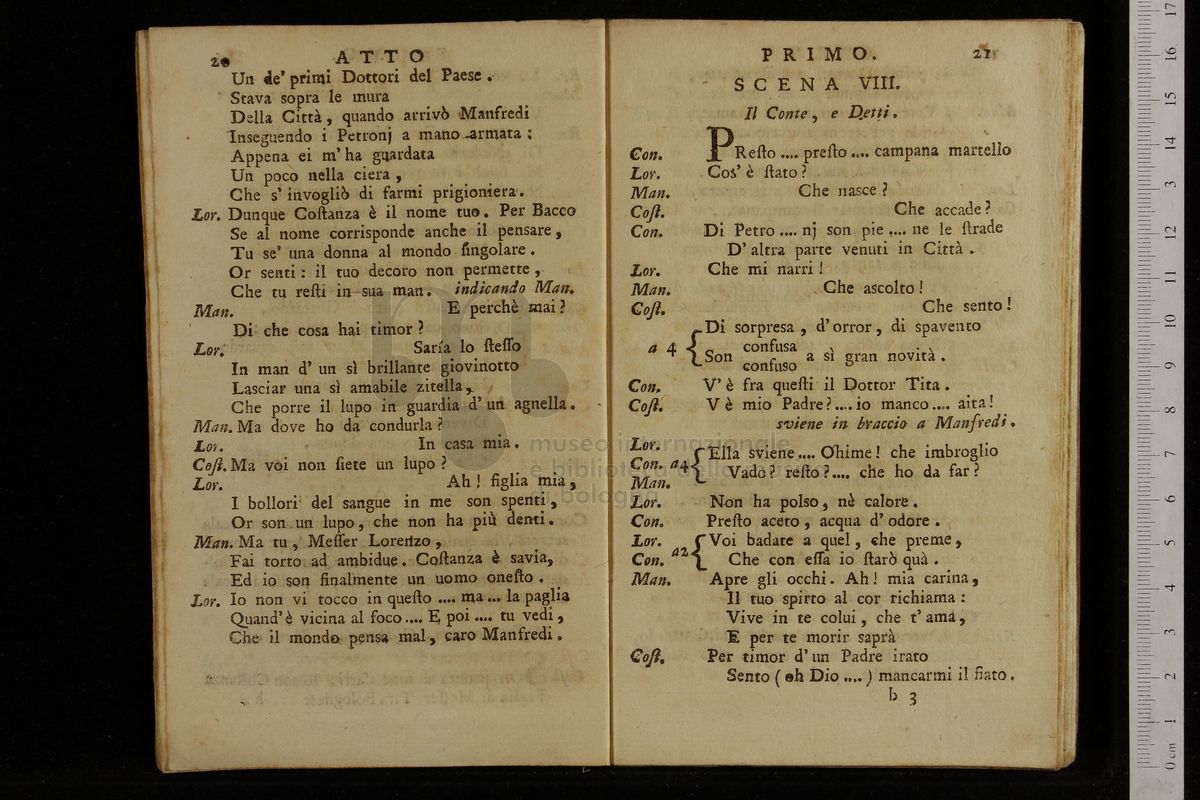 20 ATTO
Un de' primi Dottori del Paese.
Stava sopra le mura
Della Città, quando arrivò Manfredi
Inseguendo i Petronj a mano armata:
Appena ei m' ha guardata
Un poco nella ciera,
Che s' invogliò di farmi prigioniera.
Lor. Dunque Coſtanza è il nome tuo. Per Bacco
Se al nome corrisponde anche il pensare,
Tu se' una donna al mondo ſingolare.
Or senti: il tuo decoro non permette,
Che tu reſti in sua man. indicando Man.
Man. E perchè mai?
Di che cosa hai timor?
Lor. Saría lo ſteſſo
In man d' un sì brillante giovinotto
Lasciar una sì amabile zitella,
Che porre il lupo in guardia d' un agnella.
Man. Ma dove ho da condurla?
Lor. In casa mia.
Coſt. Ma voi non ſiete un lupo?
Lor. Ah! figlia mia,
I bollori del sangue in me son spenti,
Or son un lupo, che non ha più denti.
Man. Ma tu, Meſſer Lorenzo,
Fai torto ad ambidue. Coſtanza è savia,
Ed io son finalmente un uomo oneſto.
Lor. Io non vi tocco in queſto .... ma ... la paglia
Quand' è vicina al foco .... E poi .... tu vedi,
Che il mondo pensa mal, caro Manfredi.
PRIMO. 21
SCENA VIII.
Il Conte, e Detti.
Con. PReſto .... preſto .... campana martello
Lor. Cos' è ſtato?
Man. Che nasce?
Coſt. Che accade?
Con. Di Petro .... nj son pie .... ne le ſtrade
D' altra parte venuti in Città.
Lor. Che mi narri!
Man. Che ascolto!
Coſt. Che sento!
Di sorpresa, d' orror, di spavento
a 4 { Son confusa a sì gran novità.
confuso
Con. V' è fra queſti il Dottor Tita.
Coſt. V è mio Padre? .... io manco .... aita!
sviene in braccio a Manfredi.
Lor. Ella sviene .... Ohime! che imbroglio
Con. a4 { Vado? reſto? .... che ho da far?
Man.
Lor. Non ha polso, nè calore.
Con. Preſto aceto, acqua d' odore.
Lor. a2 { Voi badate a quel, che preme,
Con. Che con eſſa io ſtarò quà.
Man. Apre gli occhi. Ah! mia carina,
Il tuo spirto al cor richiama:
Vive in te colui, che t' ama,
E per te morir saprà
Coſt. Per timor d' un Padre irato
Sento (oh Dio ....) mancarmi il fiato.
b 3
museo internazionale
e biblioteca della musica
di bologna
0 cm 1 2 3 4 5 6 7 8 9 10 11 12 13 14 15 16 17